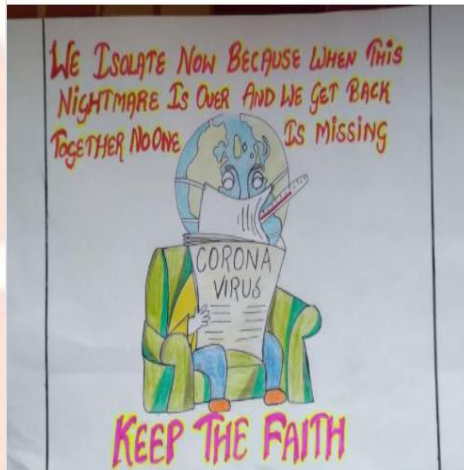 WE ISOLATE NOW BECAUSE WHEN THIS
NIGHTMARE IS OVER AND WE GET BACK
TOGETHER NO ONE IS MISSING
CORONA
VIRUS
KEEP THE FAITH